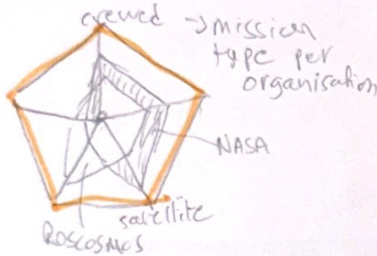 crewed → mission
type per
organisation
NASA
satellite
ROSCOSMOS